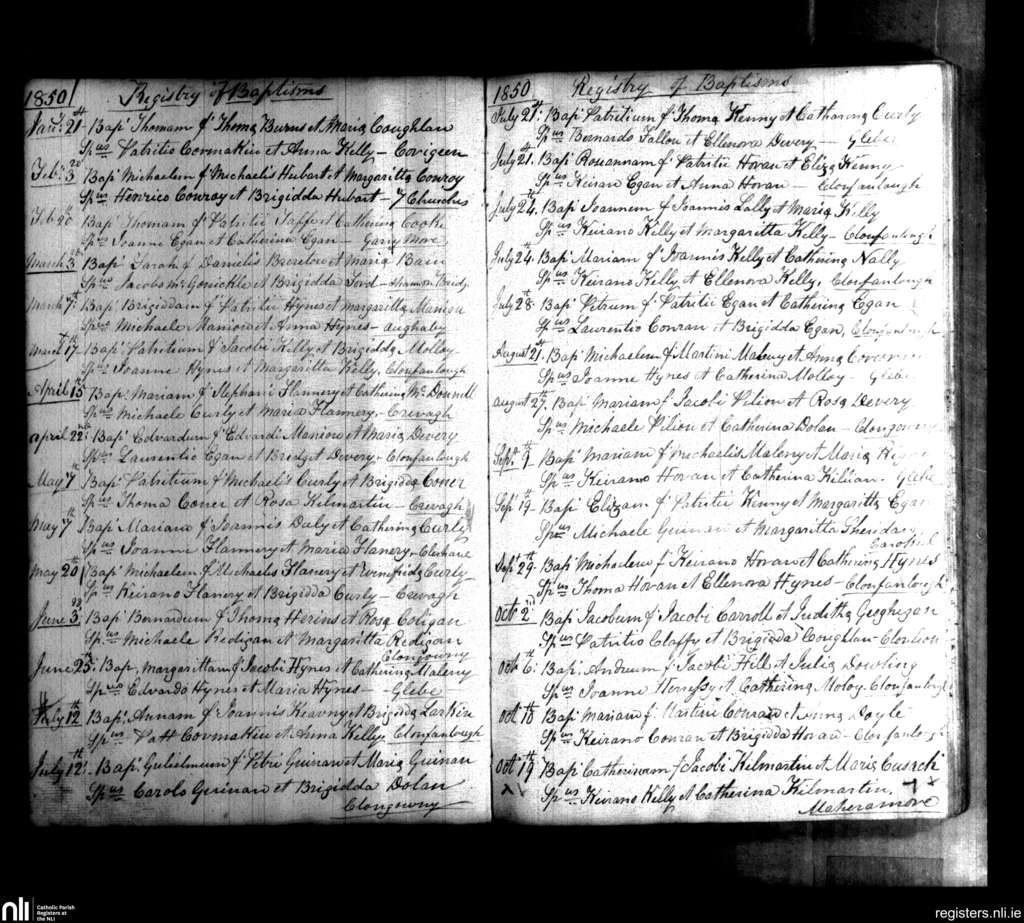 1850 Registry of Baptisms
Janry 21st Bapt Thomam f Thoma Burns et Maria Coughlan
Spus Patritio Cormakin et Anna Kelly - Corigeen
Feb 3 Bapt Michaelem f Michaelis Hubart et Margaritta Conroy
Spus Henrico Conroy et Brigidda Hubart - 7 Churches
Feb 20 Bapt Thomam f Patritii et Catherina Cooke
Spus Joanne Egan et Catherina Egan - Garry More
March 3 Bapt Sarah f Danielis et Maria
Spus Jacobo et Brigidda Ford - Shannon Bridge
March 7th Bapt Brigiddam f Patritii Hynes et Margaritta Manion
Spus Michaele Manion et Anna Hynes - Aughaby
March 17th Bapt Patritium f Jacobi Kelly et Brigidda Molloy
Spus Joanne Hynes et Margaritta Kelly, Clonfanlough
April 15th Bapt Mariam f Stephani Flannery et Catherina McDonnell
Spus Michaele Curly et Maria Flannery - Crevagh
April 22nd Bapt Edvardum f Edvardi Manion et Maria Devery
Spus Laurentio Egan et Bridget Devery - Clonfanlough
May 7th Bapt Patritium f Michaelis Curly et Brigidda
Spus Thoma et Rosa Kilmartin - Crevagh
May 7th Bapt Mariam f Joannis Daly et Catherina Curly
Spus Joanne Flannery et Maria Flanery -
May 20th Bapt Michaelem f Michaelis Flanery et Curly
Spus Keirano Flanery et Brigidda Curly - Crevagh
June 3 Bapt Bernardum f Thoma et Rosa Coligan
Spus Michaele Redigan et Margaritta Redigan
Clongowny
June 23 Bapt Margarittam f Jacobi Hynes et Catherina Maleny
Spus Edvardo Hynes et Maria Hynes - Glebe
July 12th Bapt Annam f Joannis Keavny et Brigidda Larkin
Spus Patt Cormakin et Anna Kelly, Clonfanlough
July 12th Bapt Gulielmum f Petri Guinan et Maria Guinan
Spus Carolo Guinan et Brigidda Dolan
Clongowny
1850 Registry of Baptisms
July 21st Bapt Patritium f Thoma Kenny et Catharina Curly
Spus Bernardo Fallon et Ellenora Devery - Glebe
July 21st Bapt Roseannam f Patritii Horan et Eliza Kenny
Spus Keiran Egan et Anna Horan - Clonfanlough
July 24th Bapt Joannem f Joannis Lally et Maria Kelly
Spus Keirano Kelly et Margaritta Kelly - Clonfanlough
July 24th Bapt Mariam f Joannis Kelly et Catherina Nally
Spus Keirano Kelly et Ellenora Kelly, Clonfanlough
July 28th Bapt Petrum f Patritii Egan et Catherina Egan
Spus Laurentio Conran et Brigidda Egan, Clonfanlough
August 21st Bapt Michaelem f Martini Maleny et Anna
Spus Joanne Hynes et Catherina Molloy - Glebe
August 27th Bapt Mariam f Jacobi Pilion et Rosa Devery
Spus Michaele Pilion et Catherina Dolan - Clongowny
Sept 9th Bapt Mariam f Michaelis Maleny et Maria
Spus Keirano Horan et Catherina Killian - Glebe
Sept 19th Bapt Elizam f Patritii Kenny et Margaritta Egan
Spus Michaele Guinan et Margaritta Sheridan
Sept 29th Bapt Michaelem f Keirano Horan et Catherina Hynes
Spus Thoma Horan et Ellenora Hynes - Clonfanlough
Oct 2nd Bapt Jacobum f Jacobi Carroll et Juditha Geoghegan
Spus Patritio Claffy et Brigidda Coughlan -
Oct 6th Bapt Andream f Jacobi Hill et Julia Dowling
Spus Joanne Hennessy et Catherina Moloy - Clonfanlough
Oct 18th Bapt Mariam f Martini Conran et Anna Doyle
Spus Keirano Conran et Brigidda Horan - Clonfanlough
Oct 19th Bapt Catherinam f Jacobi Kilmartin et Maria Cusack
Spus Keirano Kelly et Catherina Kilmartin.
Maheramore
nli Catholic Parish
Registers at
the NLI
registers.nli.ie